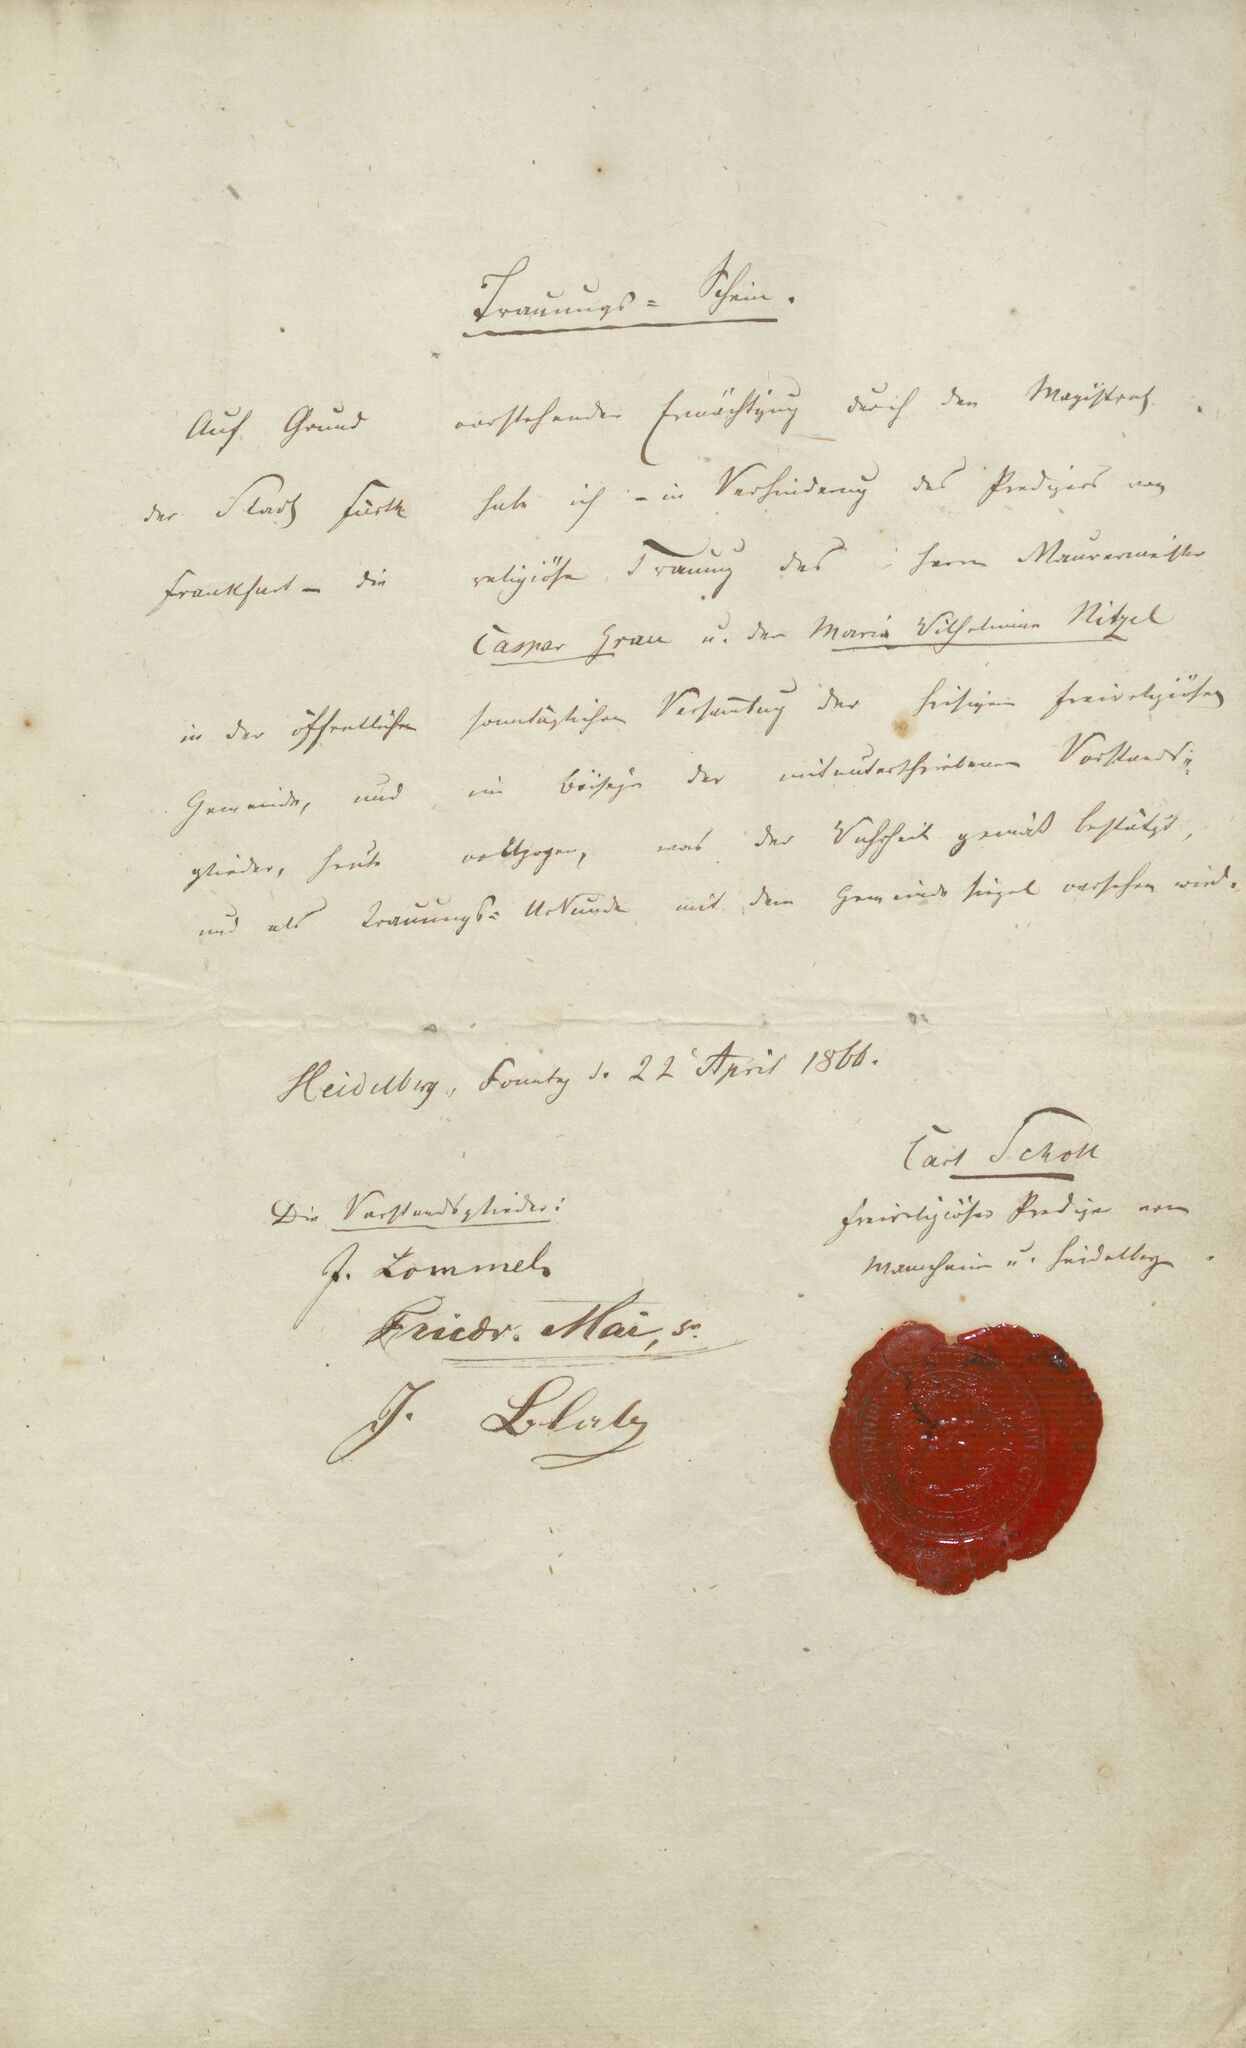 Trauungs= Schein.
Auf Grund vorstehender Ermächtigung durch den Magistrat
der Stadt Fürth habe ich - in Verhinderung des Predigers von
Frankfurt - die religiöse Trauung des Herrn Maurermeister
Caspar Grau u. der Maria Wilhelmine Nitzel
in der öffentlichen sonntäglichen Versamlung der hiesigen freireligiösen
Gemeinde, und im Beisein der mitunterschriebenen Vorstands=
glieder, heute vollzogen, was der Wahrheit gemäß bestätigt,
und als Trauungs= Urkunde mit dem Gemeindesiegel versehen wird.
Heidelberg, Sonntag d. 22 April 1866.
Carl Scholl
freireligiöser Prediger von
Mannheim u. Heidelberg.
Die Vorstandsglieder:
J. Lommel.
Friedr. Mai, sr.
J.